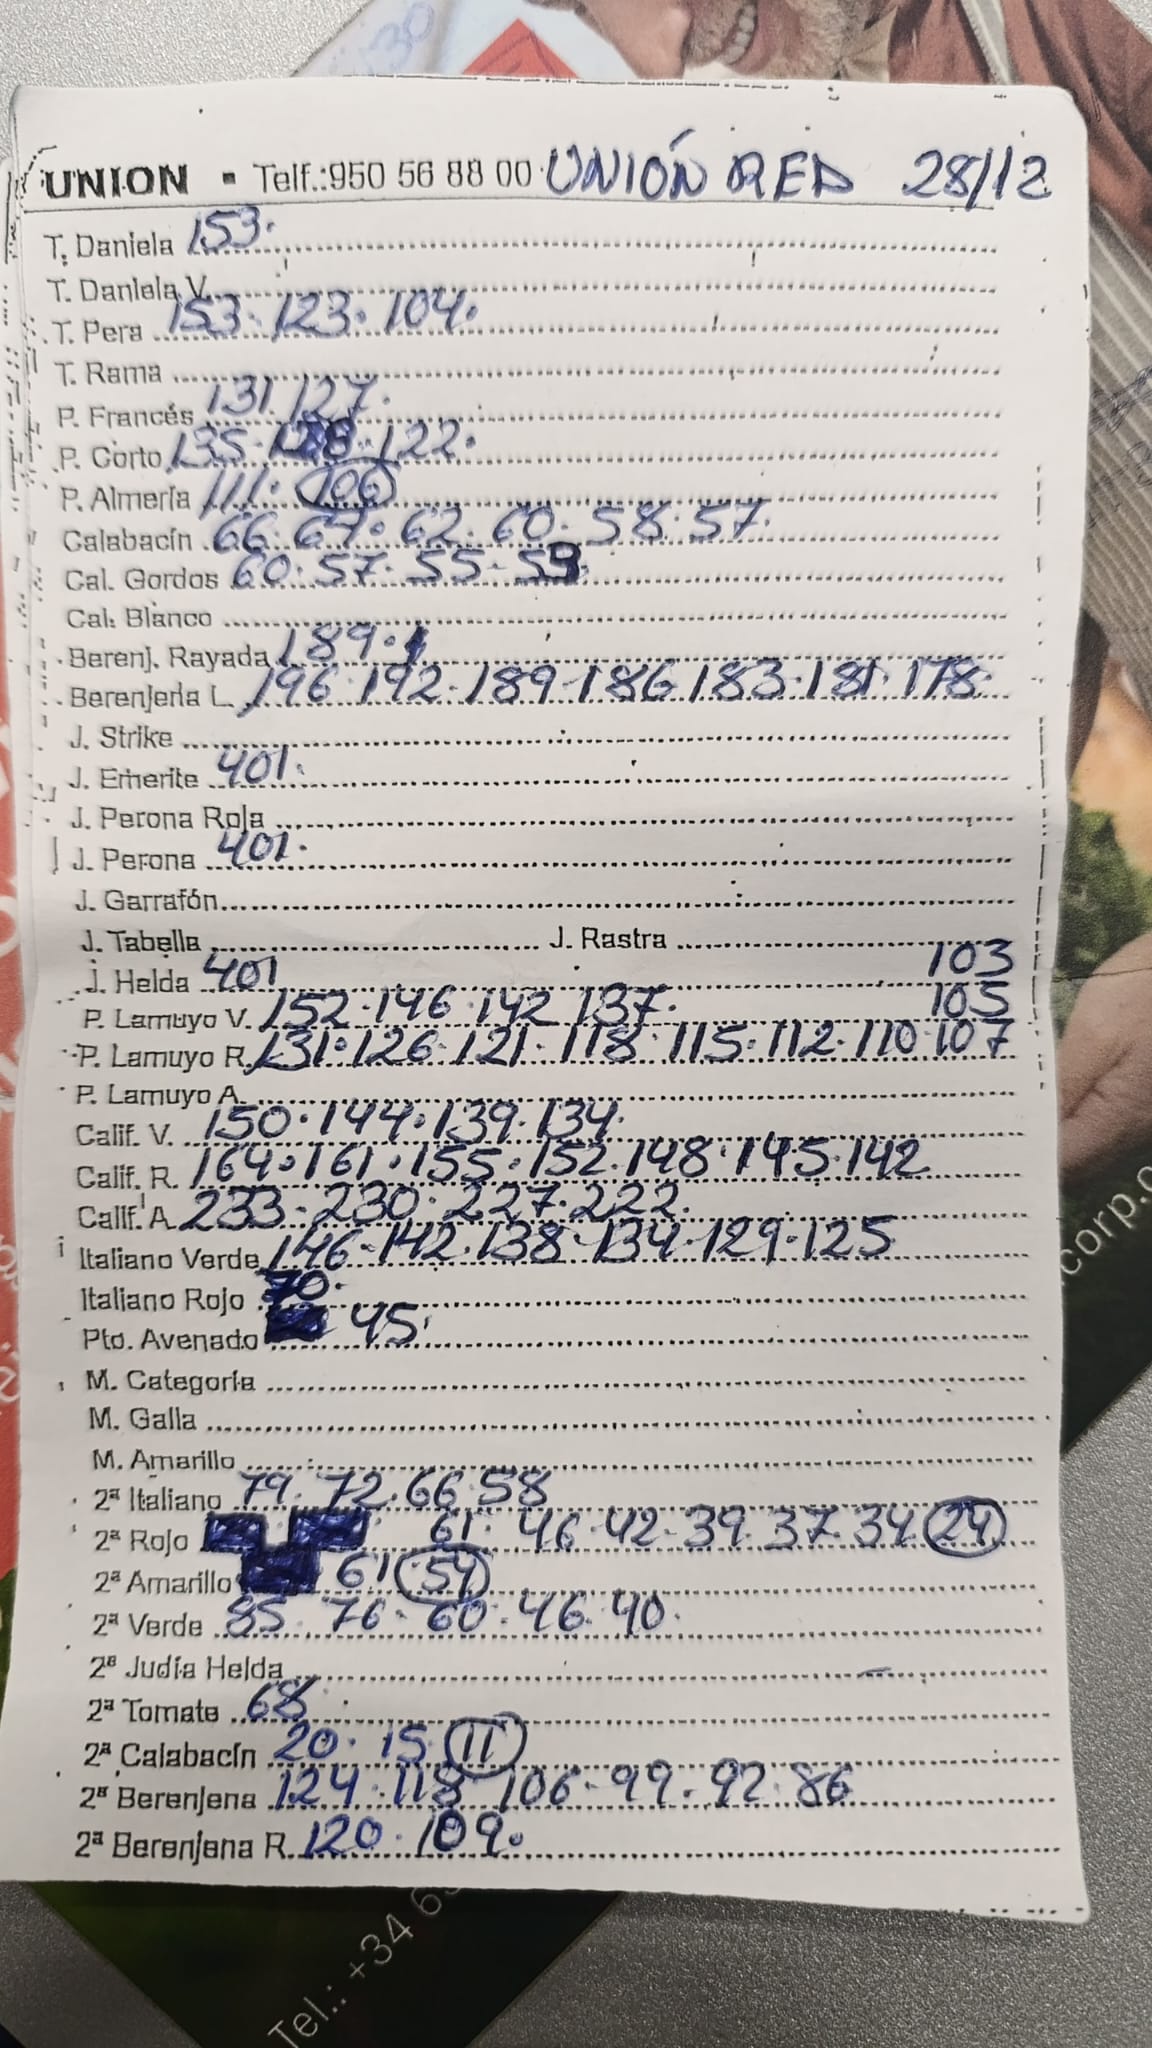 UNION - Telf.:950 56 88 00 UNIÓN RED 28/12
T. Daniela 153.
T. Daniela V.
T. Pera 153. 123. 104.
T. Rama
P. Francés 131. 127.
P. Corto 135. 128. 122.
P. Almería 111. 106
Calabacín 66. 64. 62. 60. 58. 57.
Cal. Gordos 60. 57. 55. 53.
Cal. Blanco
Berenj. Rayada 189.
Berenjena L. 196. 192. 189. 186. 183. 181. 178.
J. Strike
J. Emerite 401.
J. Perona Roja
J. Perona 401.
J. Garrafón
J. Tabella J. Rastra
103
J. Helda 401
105
P. Lamuyo V. 152. 146. 142. 137.
P. Lamuyo R. 131. 126. 121. 118. 115. 112. 110. 107
P. Lamuyo A.
Calif. V. 150. 144. 139. 134.
Calif. R. 164. 161. 155. 152. 148. 145. 142
Calif. A. 233. 230. 227. 222.
Italiano Verde 146. 142. 138. 134. 129. 125
Italiano Rojo 70.
Pto. Avenado 45.
M. Categoría
M. Galia
M. Amarillo
2ª Italiano 79. 72. 66. 58
2ª Rojo 61. 46. 42. 39. 37. 34. 24
2ª Amarillo 61. 54
2ª Verde 85. 76. 60. 46. 40.
2ª Judía Helda
2ª Tomate 68.
2ª Calabacín 20. 15. 11
2ª Berenjena 124. 118. 106. 99. 92. 86
2ª Berenjena R. 120. 109.
corp.c
Tel.: +34 6